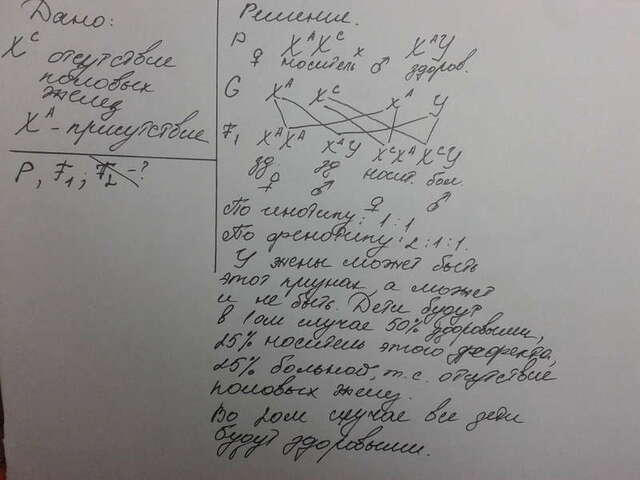 Дано:
X^C отсутствие
половых
желез
X^A - присутствие
P, F₁; F₂ -?
Решение.
P X^A X^C x X^A Y
♀ носитель ♂ здоров.
G X^A X^C X^A Y
F₁ X^A X^A X^A Y X^C X^A X^C Y
зд зд носит. бол.
♀ ♂ ♀ ♂
По генотипу: 1:1
По фенотипу: 2:1:1.
У жены может быть
этот признак а может
и не быть. Дети будут
в 1ом случае 50% здоровыми,
25% носитель этого дефекта,
25% больной, т.е. отсутствие
половых желез.
Во 2ом случае все дети
будут здоровыми.